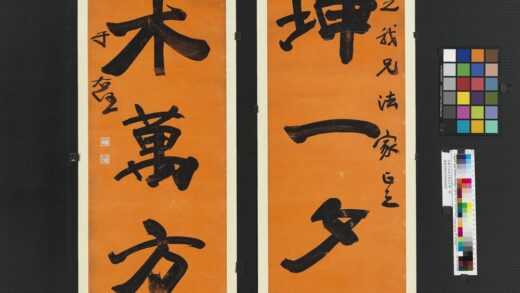 坤一夕
我兄法家正之
木萬方
于右任